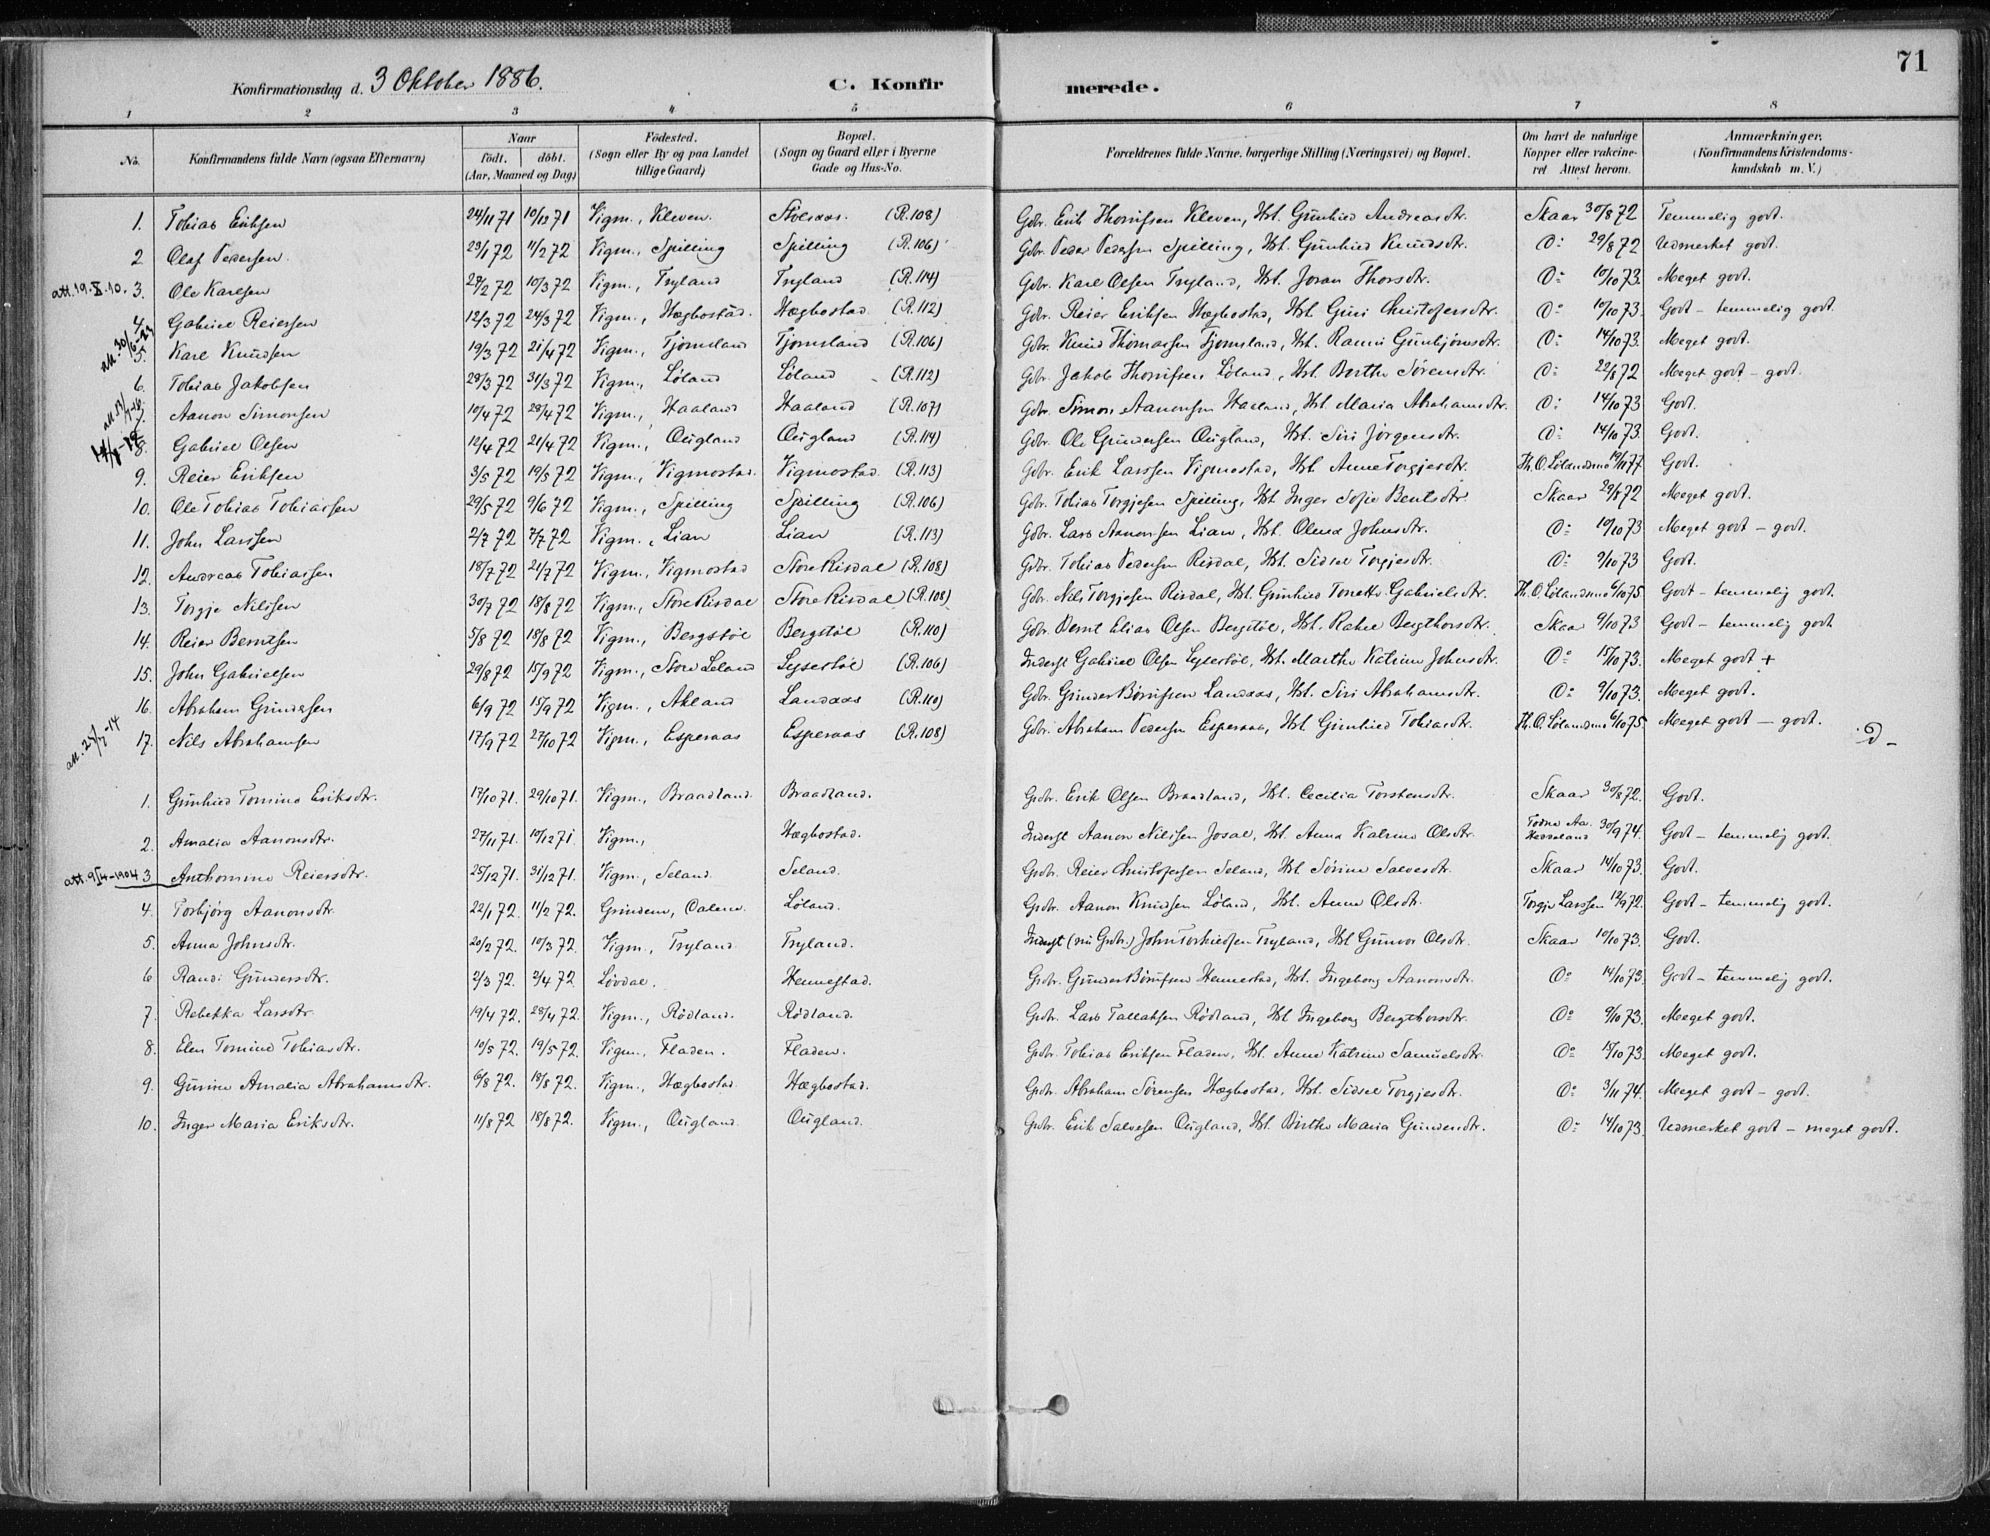 71
Konfirmationsdag d. 3 Oktober 1886. C. Konfirmerede.
1 2 3 4 5 6 7 8
No. Konfirmandens fulde Navn (ogsaa Efternavn) Naar födt. döbt. (Aar, Maaned og Dag) Födested. (Sogn eller By og paa Landet tillige Gaard) Bopæl. (Sogn og Gaard eller i Byerne Gade og Hus-No. Forældrenes fulde Navne, borgerlige Stilling (Næringsvei) og Bopæl. Om havt de naturlige Kopper eller vakcineret Attest herom. Anmærkninger. (Konfirmandens Kristendomskundskab m. V.)
1. Tobias Eriksen 24/11 71 10/12 71 Vigm., Kleven. Stølsaas. (R.108) Gdbr. Erik Thorsifsen Kleven, Hst. Gunhild Andreasdtr. Skaar 30/8 72 Temmelig godt.
2 Olaf Pedersen. 23/1 72 11/2 72 Vigm., Spilling Spilling (R.106) Gdbr. Peder Pedersen Spilling, Hst. Gunhild Knudsdtr. Do 29/8 72 Udmerket godt.
att. 19.X.10. 3. Ole Karlsen 28/2 72 10/3 72 Vigm., Tryland Tryland (R.114) Gdbr. Karl Olsen Tryland, Hst. Joran Thorsdtr. Do 10/10 73. Meget godt.
4. Gabriel Reiersen 12/3 72 24/3 72 Vigm., Hægbostad. Hægbostad (R.112) Gdbr. Reier Eriksen Hægbostad, Hst. Guri Christofersdtr. Do 10/10 73. Godt - temmelig godt.
att. 30/6-23 5. Karl Knudsen 19/3 72 21/4 72 Vigm., Tjomsland Tjomsland (R.106) Gdbr. Knud Thomassen Tjomsland, Hst. Rannei Gunbjørnsdtr. Do 14/10 73. Meget godt.
6. Tobias Jakobsen 29/3 72 31/3 72 Vigm., Løland Løland (R.112) Gdbr. Jakob Thorsifsen Løland, Hst. Berthe Sørensdtr. Do 22/8 72 Meget godt - godt.
7. Aanon Simonsen 10/4 72 28/4 72 Vigm., Haaland Haaland (R.107) Gdbr. Simon Aanonsen Haaland, Hst. Maria Abrahamsdtr. Do 14/10 73 Godt.
8. Gabriel Olsen 12/4 72 21/4 72 Vigm., Øugland Øugland (R.114) Gdbr. Ole Gundersen Øugland, Hst. Siri Jørgensdtr. Do 14/10 73. Godt.
9. Reier Eriksen 3/5 72 19/5 72 Vigm., Vigmostad. Vigmostad. (R.113) Gdbr. Erik Larssen Vigmostad, Hst. Anne Torgjesdtr. Th. O. Lølandsmo 19/11 77 Godt.
10. Ole Tobias Tobiassen 29/5 72 9/6 72 Vigm., Spilling Spilling (R.106) Gdbr. Tobias Torgjesen Spilling, Hst. Inger Sofie Bentsdtr. Skaar 29/8 72 Meget godt.
11. John Larssen 2/7 72 7/7 72 Vigm., Lian Lian (R.113) Gdbr. Lars Aanonsen Lian, Hst. Olena Johnsdtr. Do 10/10 73 Meget godt - godt.
12. Andreas Tobiassen 18/7 72 21/7 72 Vigm., Vigmostad Store Risdal (R.108) Gdbr. Tobias Pedersen Risdal, Hst. Sidsel Torgjesdtr. Do 9/10 73 Godt.
13. Torgje Nilssen 30/7 72 18/8 72 Vigm., Store Risdal Store Risdal (R.108) Gdbr. Nils Torgjesen Risdal, Hst. Gunhild Tonette Gabrielsdtr. Th. O. Lølandsmo 6/10 75 Godt - temmelig godt.
14. Reier Berntsen 5/8 72 18/8 72 Vigm., Bergstøl Bergstøl (R.110) Gdbr. Bernt Elias Olsen Bergstøl, Hst. Rakel Bergthorsdtr. Skaar 9/10 73 Godt - temmelig godt
15. John Gabrielsen 29/8 72 15/9 72 Vigm., Store Leland Lysestøl (R.106) Inderst Gabriel Olsen Lysestøl, Hst. Marthe Katrine Johnsdtr. Do 15/10 73. Meget godt +
16. Abraham Gundersen 6/9 72 15/9 72 Vigm., Akland Landaas (R.110) Gdbr. Gunder Børufsen Landaas, Hst. Siri Abrahamsdtr. Do 9/10 73. Meget godt.
att. 25/7-14 17. Nils Abrahamsen 17/9 72 27/10 72 Vigm., Esperaas Esperaas (R.108) Gdbr. Abraham Pedersen Esperaas, Hst. Gunhild Tobiasdtr. Th. O. Lølandsmo 6/10 75. Meget godt - godt.
1. Gunhild Tomine Eriksdtr. 17/10 71. 29/10 71. Vigm., Braadland. Braadland. Grdbr. Erik Olsen Braadland, Hst. Cecilia Torstensdtr. Skaar 30/8 72. Godt.
2. Amalia Aanonsdtr. 27/11 71. 10/12 71 Vigm., Hægbostad. Inderst Aanon Nilssen Josdal, Hst. Anna Katrine Olsdtr. 30/9 74. Godt - temmelig godt.
att. 9/4-1904 3 Anthomine Reiersdtr. 25/12 71. 31/12 71. Vigm., Seland. Seland. Grdbr. Reier Christofersen Seland, Hst. Sørine Salvesdtr. Skaar 14/10 73. Godt.
4. Torbjørg Aanonsdtr. 22/1 72. 11/2 72. Grindem, Løland. Grdbr. Aanon Knudsen Løland, Hst. Anne Olsdtr. Torgje Larssen 12/9 72. Godt - temmelig godt.
5. Anna Johnsdtr. 20/2 72. 10/3 72. Vigm., Tryland. Tryland. Inderst (nu Grdbr.) John Torkildsen Tryland, Hst. Gunvor Olsdtr. Skaar 10/10 73. Godt.
6 Randi Gundersdtr. 2/3 72. 3/4 72. Løvdal. Hennestad. Grdbr. Gunder Børufsen Hennestad, Hst. Ingeborg Aanonsdtr. Do 14/10 73. Godt - temmelig godt.
7. Rebekka Larsdtr. 19/4 72. 28/4 72. Vigm., Rødland. Rødland. Grdbr. Lars Tallaksen Rødland, Hst. Ingeborg Bergthorsdtr. Do 9/10 73. Meget godt.
8. Elen Tomine Tobiasdtr. 10/5 72. 19/5 72. Vigm., Fladen. Fladen. Grdbr. Tobias Eriksen Fladen, Hst. Anne Katrine Samuelsdtr. Do 15/10 73. Meget godt.
9. Gurine Amalia Abrahamsdtr. 6/8 72. 18/8 72. Vigm., Hægbostad. Hægbostad. Grdbr. Abraham Sørensen Hægbostad, Hst. Sidsel Torgjesdtr. Do 3/11 74. Meget godt - godt.
10. Inger Maria Eriksdtr. 11/8 72 18/8 72. Vigm., Øugland. Øugland. Grdbr. Erik Salvesen Øugland, Hst. Birthe Maria Gundersdtr. Do 14/10 73. Udmerket godt - meget godt.